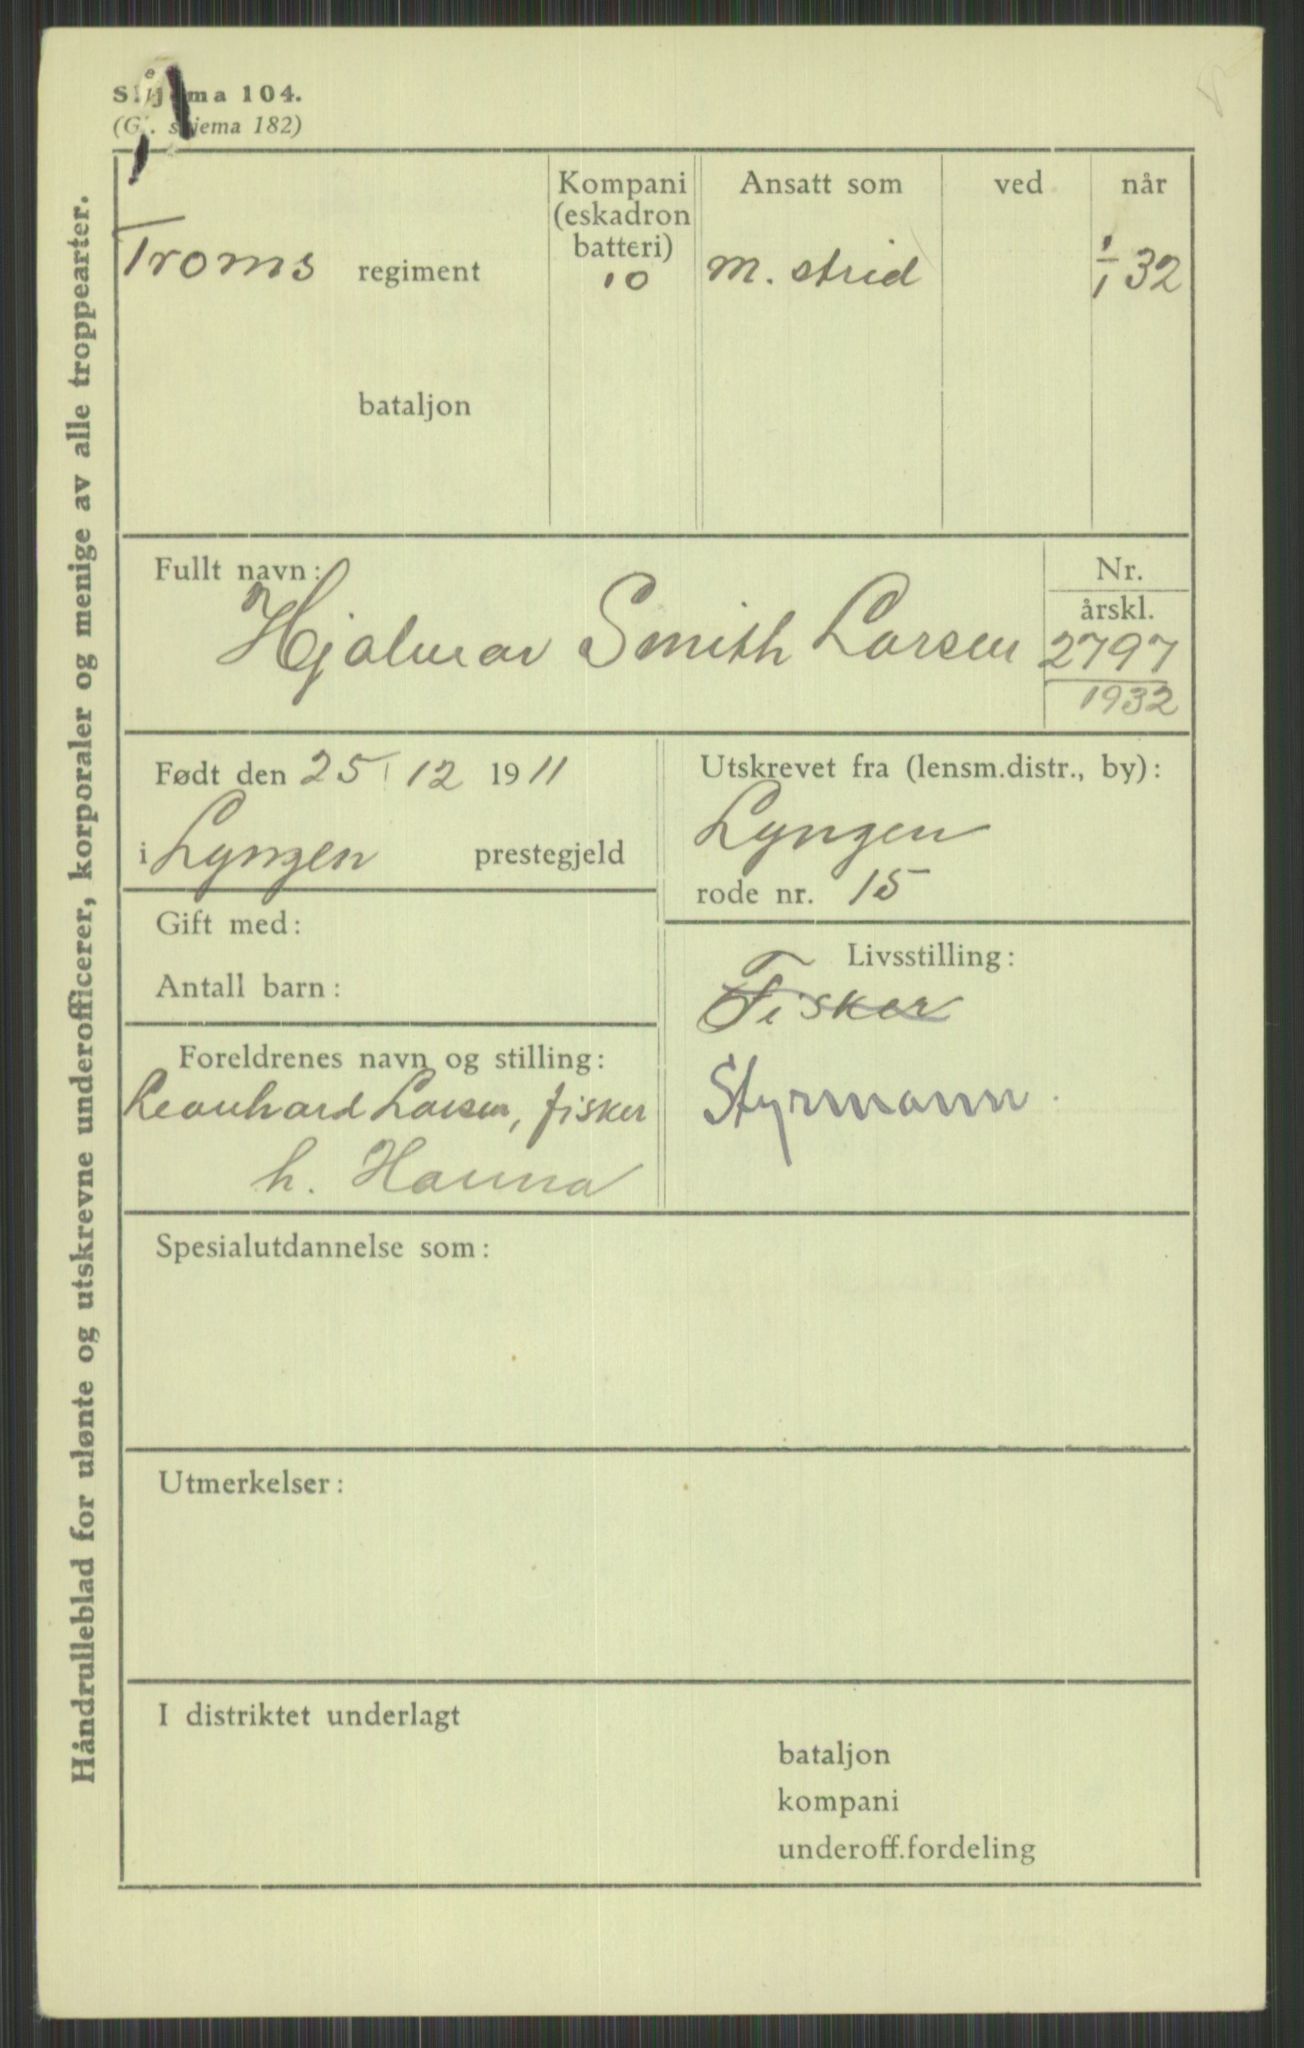 Skjema 104.
(Gl. skjema 182)
Håndrulleblad for ulønte og utskrevne underofficerer, korporaler og menige av alle troppearter.
Kompani (eskadron batteri)
Ansatt som
ved
når
Troms regiment
10
m. strid
1/1 32
bataljon
Fullt navn:
Hjalmar Smith Larsen
Nr.
årskl.
2797
1932
Født den 25/12 1911
i Lyngen prestegjeld
Utskrevet fra (lensm.distr., by):
Lyngen
rode nr. 15
Gift med:
Antall barn:
Livsstilling:
Fisker
Styrmann.
Foreldrenes navn og stilling:
Leonhard Larsen, fisker
h. Hanna
Spesialutdannelse som:
Utmerkelser:
I distriktet underlagt
bataljon
kompani
underoff.fordeling